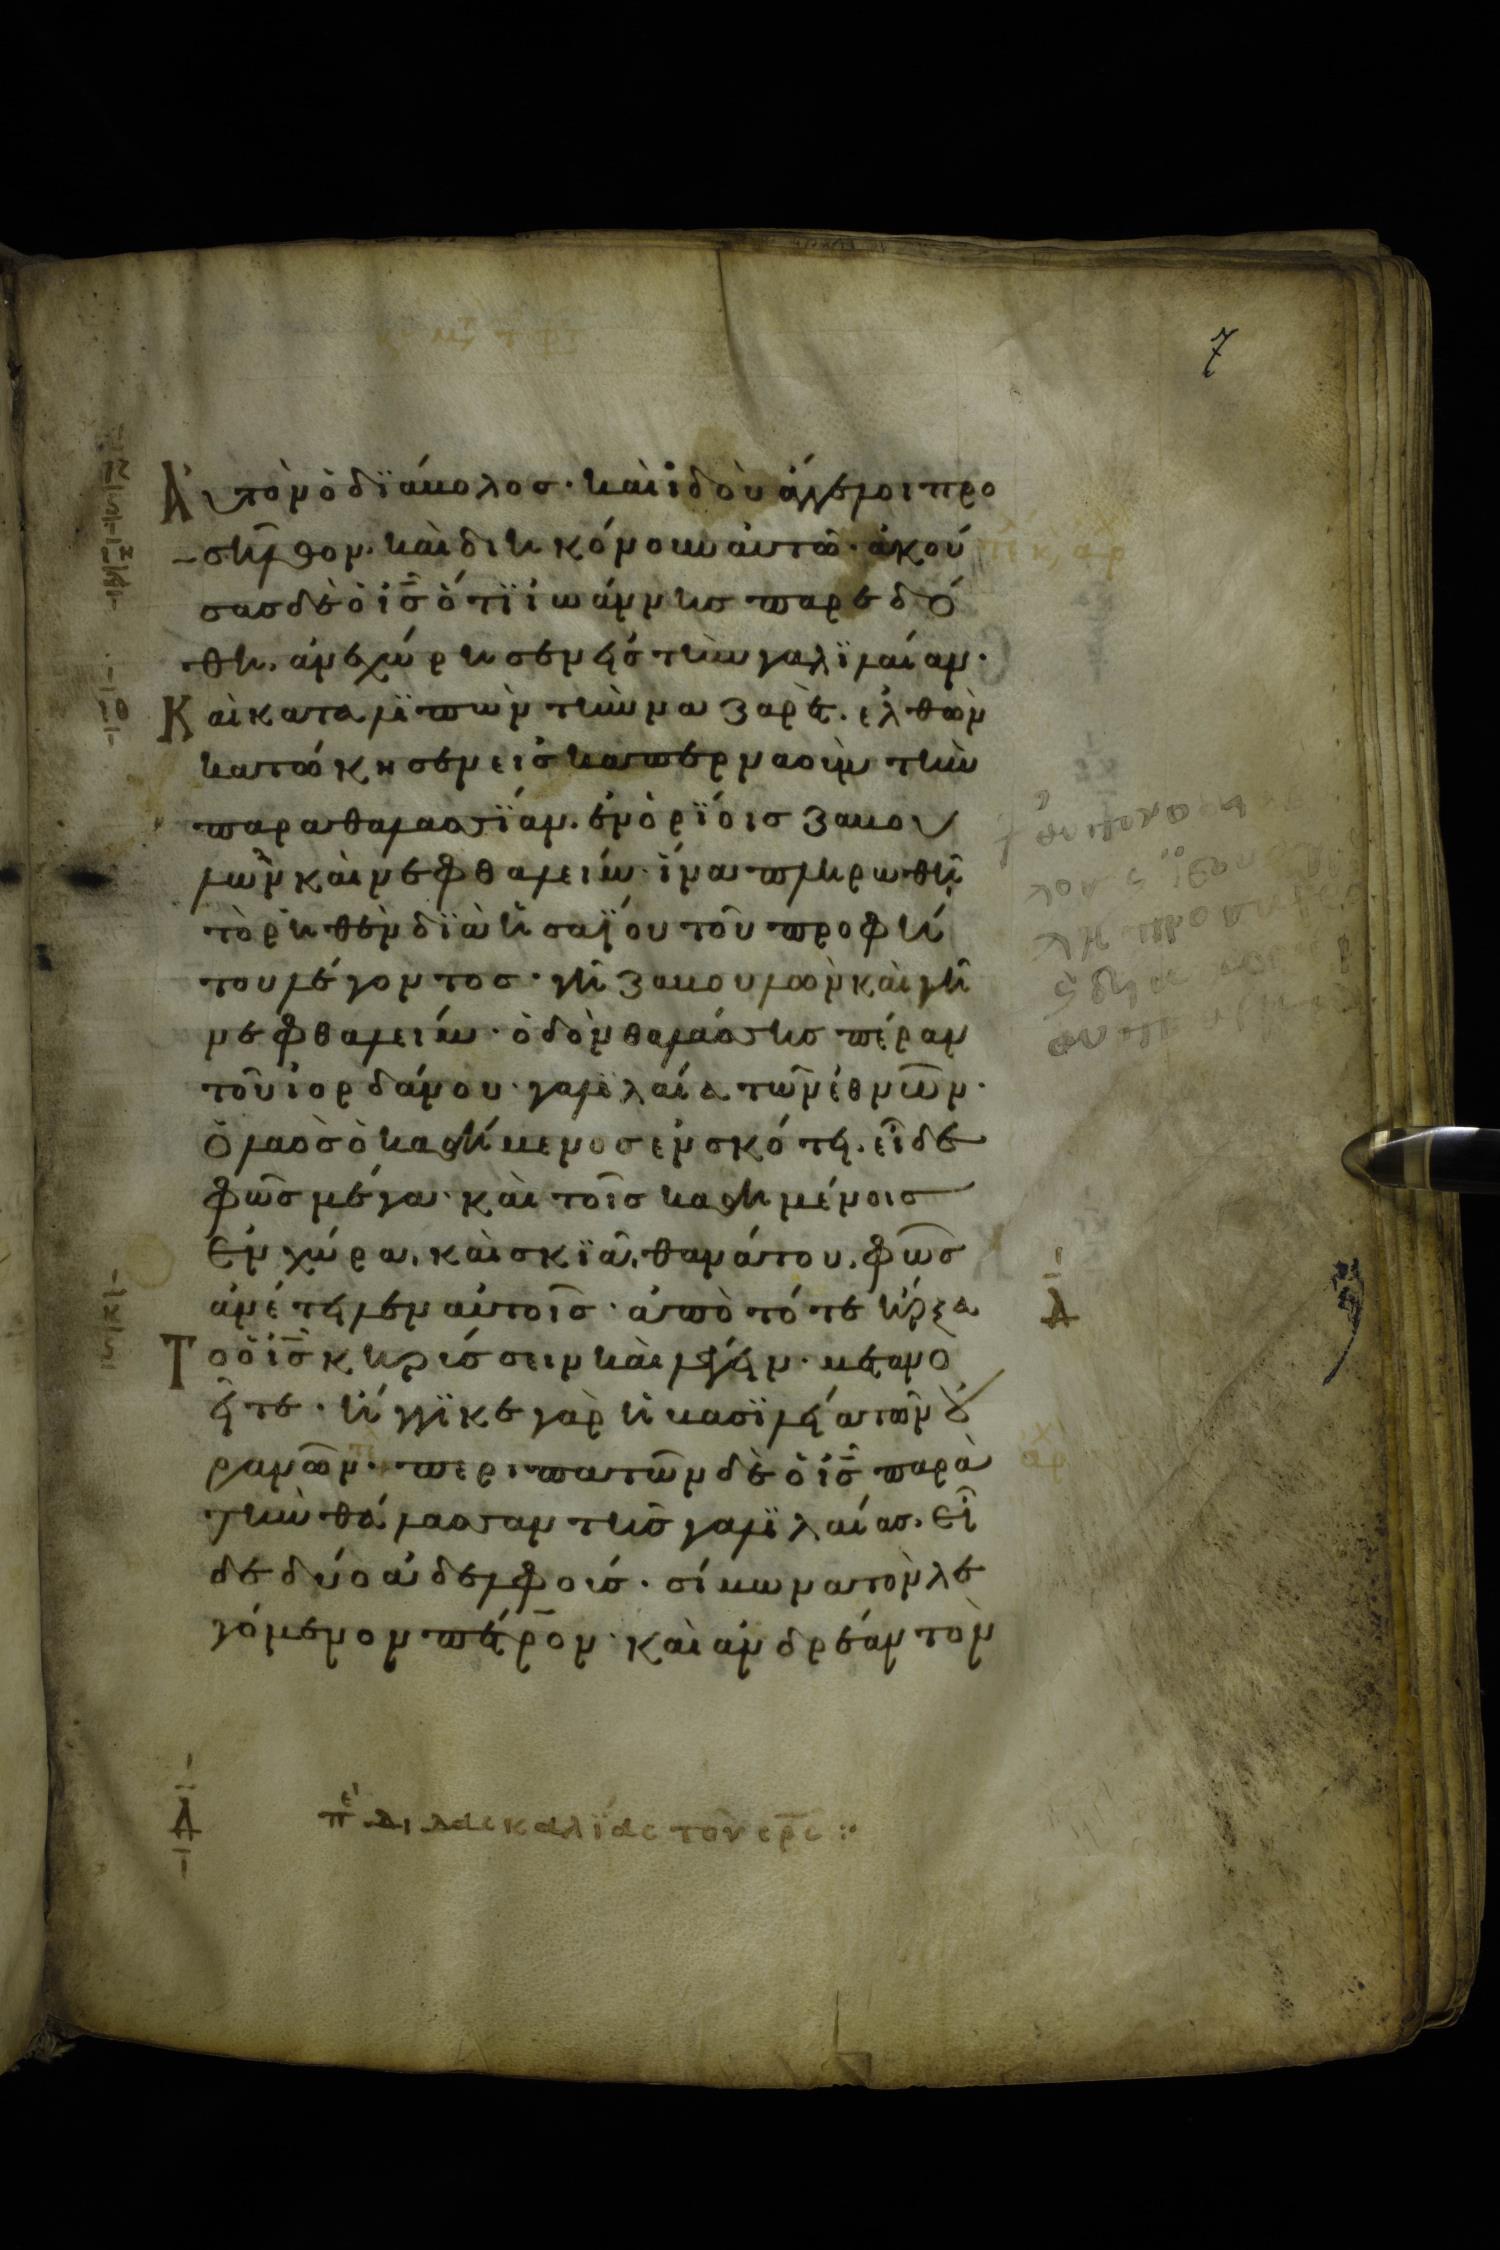 7
Αυτὸν ὁ διάβολος · καὶ ἰδοὺ ἄγγελοι προ
σῆλθον · καὶ διηκόνουν αὐτῶ · ἀκού
σας δὲ ὁ ις ὅτϊ ἰωάννης παρεδό
θη · ἀνεχώρησεν εἰς τὴν γαλϊλαίαν ·
Καὶ καταλϊπὼν τὴν ναζαρὲτ · ἐλθὼν
κατώκησεν εἰς καπερναοὺμ τὴν
παραθαλασσΐαν · ἐν ὁρΐοις ζαβου
λὼν καὶ νεφθαλείμ · ἵνα πληρωθῆ
τὸ ῥηθὲν δϊὰ ἠσαΐου τοῦ προφή
του λέγοντος · γῆ ζαβουλὼν καὶ γῆ
νεφθαλείμ · ὁδὸν θαλάσσης πέραν
τοῦ ἰορδάνου · γαλϊλαία τῶν ἐθνῶν ·
ὁ λαὸς ὁ καθήμενος ἐν σκότει · εἶδε
φῶς μέγα · καὶ τοῖς καθημένοις
ἐν χώρα καὶ σκϊᾶ θανάτου · φῶς
ἀνέτειλεν αὐτοῖς · ἀπὸ τότε ἤρξα
Το ὁ ις κηρύσσειν καὶ λέγειν · μετανο
εῖτε · ἤγγϊκε γὰρ ἡ βασϊλεία τῶν οὐ
ρανῶν · περιπατῶν δὲ ὁ ις παρὰ
τὴν θάλασσαν τῆς γαλϊλαίας · εἶ
δε δύο ἀδελφούς · σίμωνα τὸν λε
γόμενον πέτρον · καὶ ἀνδρέαν τὸν
πε διδασκαλΐας τον